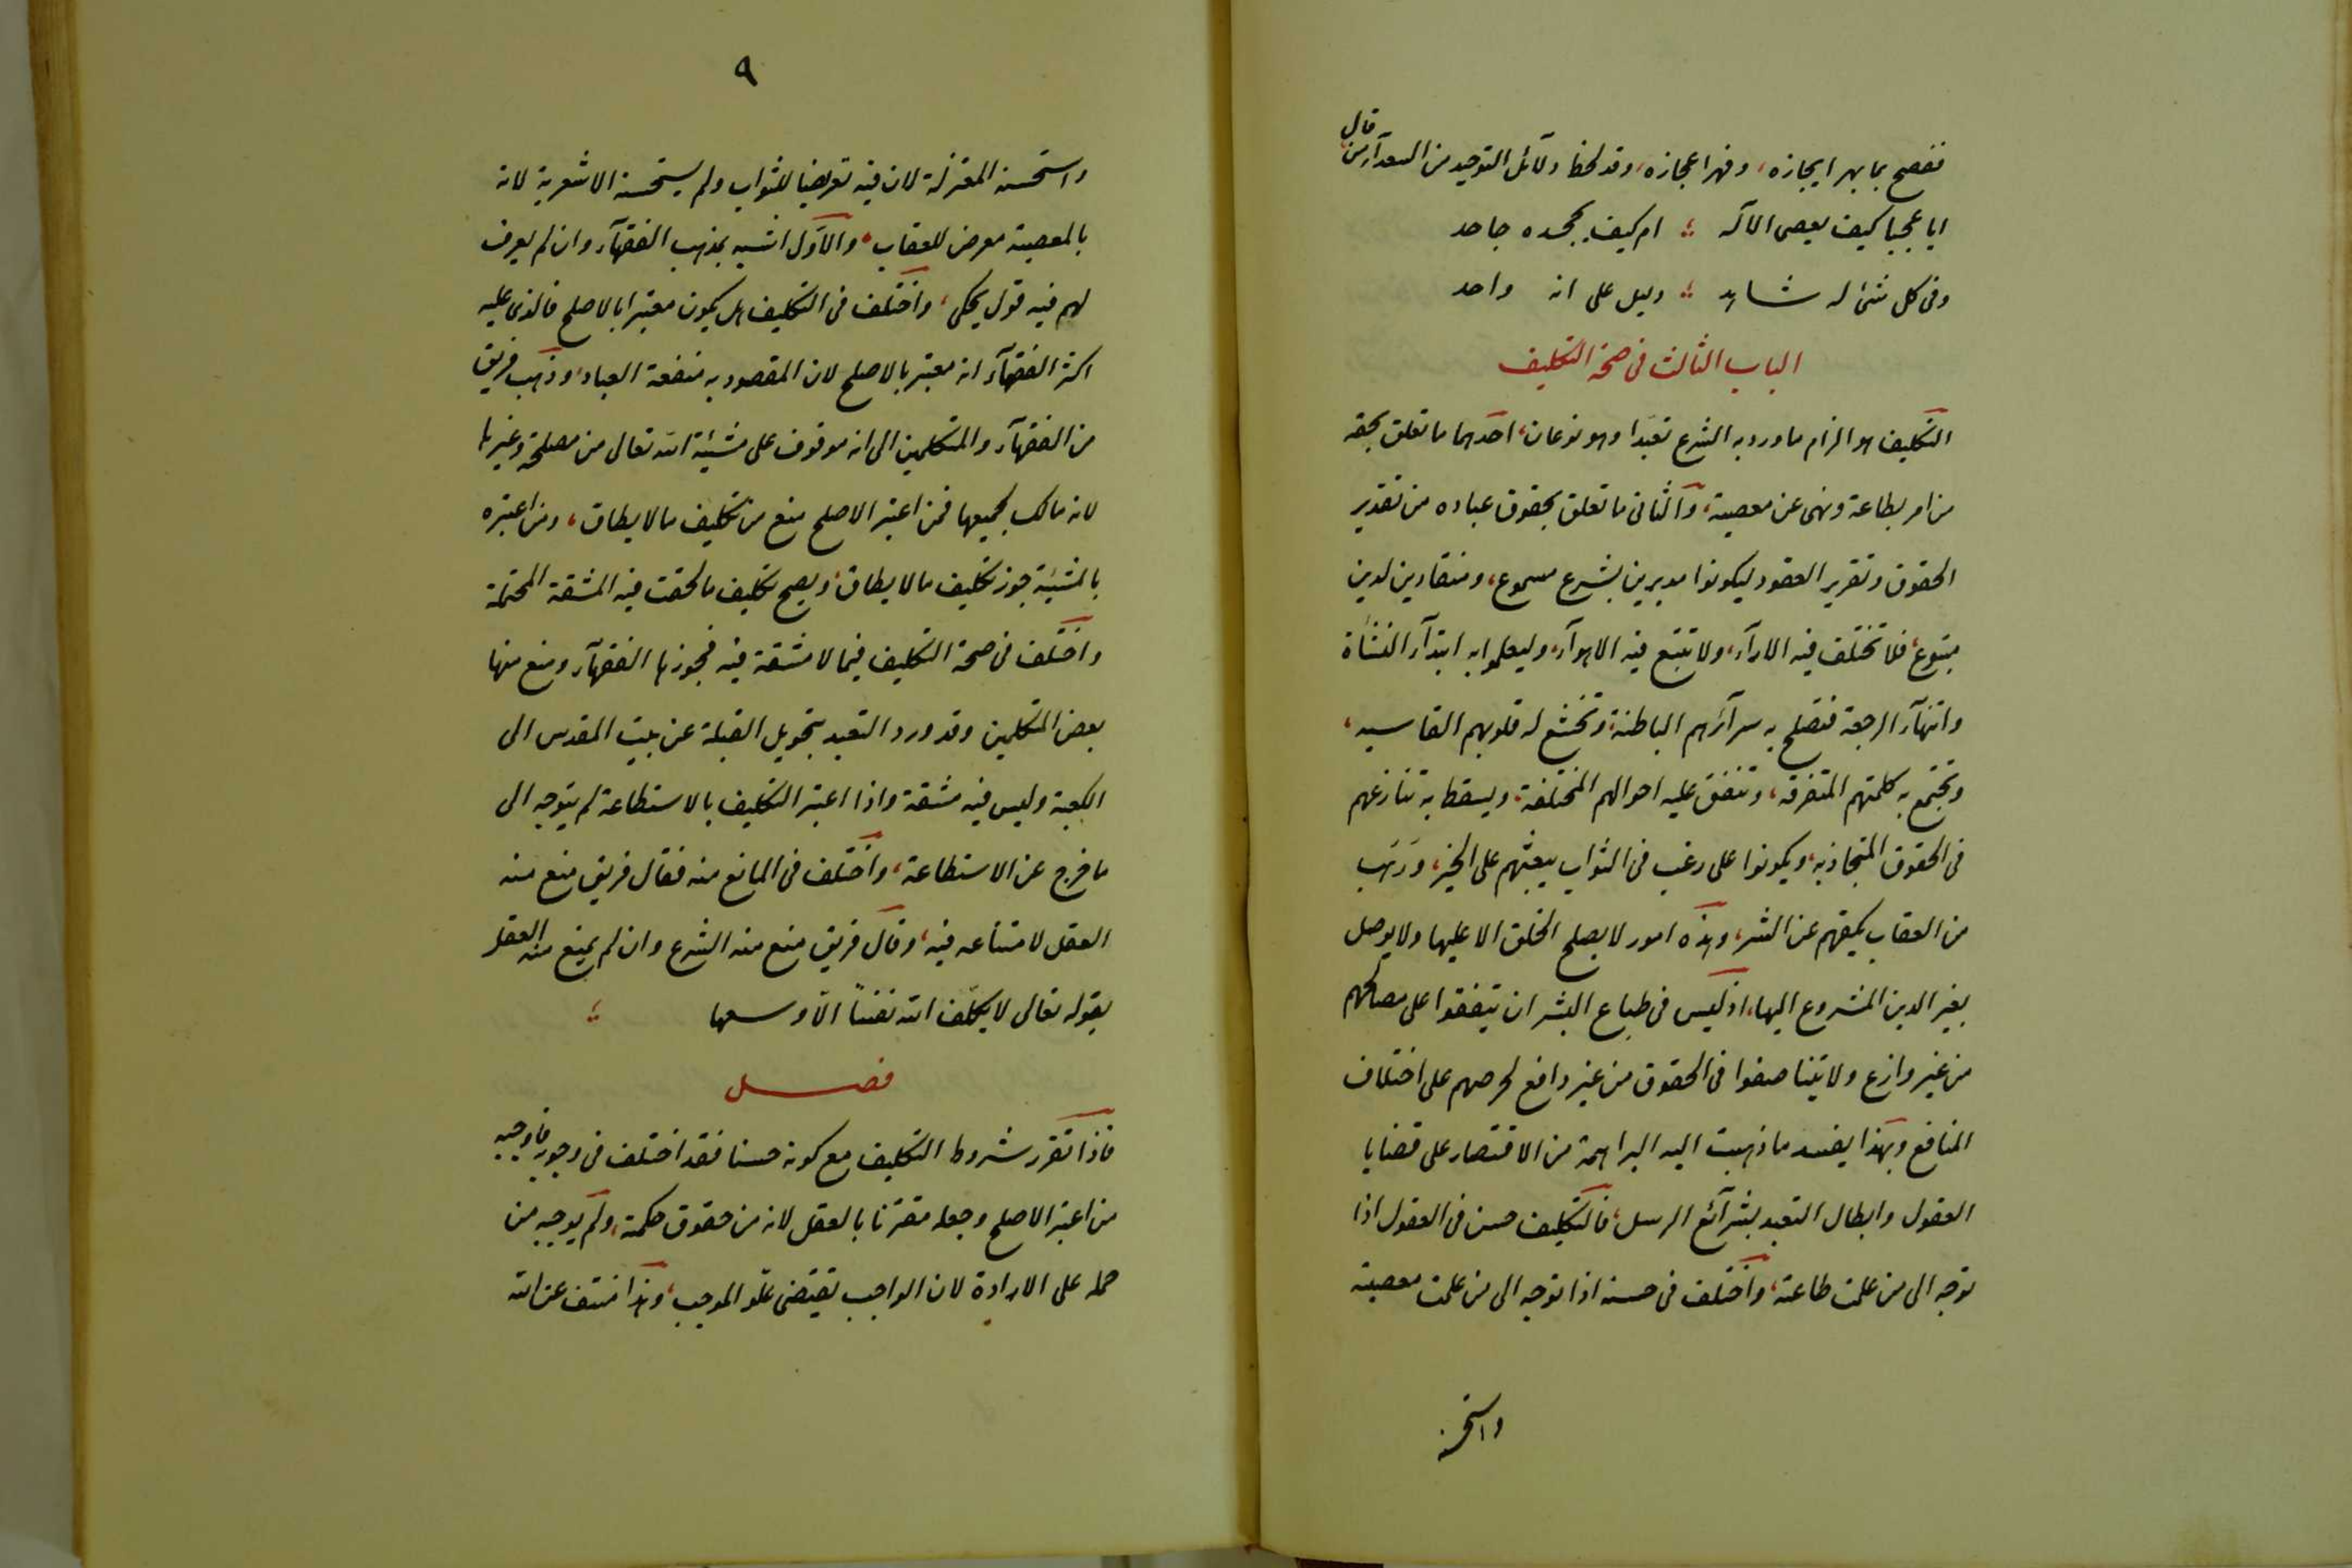 فصح بما بهر ايجازه، وقهر اعجازه، وقد لحظ دلآئل التوحيد من السعدآء من قال
ايا عجبا كيف يعصى الاله ؛ ام كيف يجحده جاحد
وفى كل شئ له شاهد ؛ دليل على انه واحد
الباب الثالث فى صحة التكليف
التكليف هو الزام ما ورد به الشرع تعبدا وهو نوعان، احدهما ما تعلق بحقه
من امر بطاعة ونهى عن معصية، والثانى ما تعلق بحقوق عباده من تقدير
الحقوق وتقرير العقود ليكونوا مدبرين بشرع مسموع، ومنقادين لدين
متبوع، فلا تختلف فيه الارآء، ولا تتبع فيه الاهوآء، وليعلموا به ابتدآء النشأة
وانتهآء الرجعة فتصلح به سرآئرهم الباطنة، وتخشع له قلوبهم القاسيه،
وتجتمع به كلمتهم المتفرقه، وتتفق عليه احوالهم المختلفة، ويسقط به تنازعهم
فى الحقوق المتجاذبه، ويكونوا على رغب فى الثواب يبعثهم على الخير، ورهب
من العقاب يكفهم عن الشر، وهذه امور لا يصلح الخلق الا عليها ولا يوصل
بغير الدين المشروع اليها، اذ ليس فى طباع البشر ان يتفقوا على مصالحهم
من غير وازع ولا يتناصفوا فى الحقوق من غير دافع لحرصهم على اختلاف
المنافع وبهذا يفسد ما ذهبت اليه البراهمة من الاقتصار على قضايا
العقول وابطال التعبد بشرآئع الرسل، فالتكليف حسن فى العقول اذا
توجه الى من علمت طاعته، واختلف فى حسنه اذا توجه الى من علمت معصيته
واستحسنه
٩
واستحسنه المعتزلة لان فيه تعريضا للثواب ولم يستحسنه الاشعرية لانه
بالمعصية معرض للعقاب، والاول اشبه بمذهب الفقهآء وان لم يعرف
لهم فيه قول يحكى، واختلف فى التكليف هل يكون معتبرا بالاصلح فالذى عليه
اكثر الفقهآء انه معتبر بالاصلح لان المقصود به منفعة العباد، وذهب فريق
من الفقهآء والمتكلمين الى انه موقوف على مشيئة الله تعالى من مصلحة وغيرها
لانه مالك لجميعها فمن اعتبر الاصلح منع من تكليف ما لا يطاق، ومن اعتبره
بالمشيئة جوز تكليف ما لا يطاق، ويصح تكليف ما لحقت فيه المشقة المحتملة
واختلف فى صحة التكليف فيما لا مشقة فيه فجوزها الفقهآء ومنع منها
بعض المتكلمين وقد ورد التعبد بتحويل القبلة عن بيت المقدس الى
الكعبة وليس فيه مشقة واذا اعتبر التكليف بالاستطاعة لم يتوجه الى
ما خرج عن الاستطاعة، واختلف فى المانع منه فقال فريق منع منه
العقل لامتناعه فيه، وقال فريق منع منه الشرع وان لم يمنع منه العقل
بقوله تعالى لا يكلف الله نفسًا الّا وسعها ؛
فصل
فاذا تقرر شروط التكليف مع كونه حسنا فقد اختلف فى وجوبه فاوجبه
من اعتبر الاصلح وجعله مقترنا بالعقل لانه من حقوق حكمته، ولم يوجبه من
حمله على الارادة لان الواجب يقتضى علو الموجب، وهذا منتف عن الله